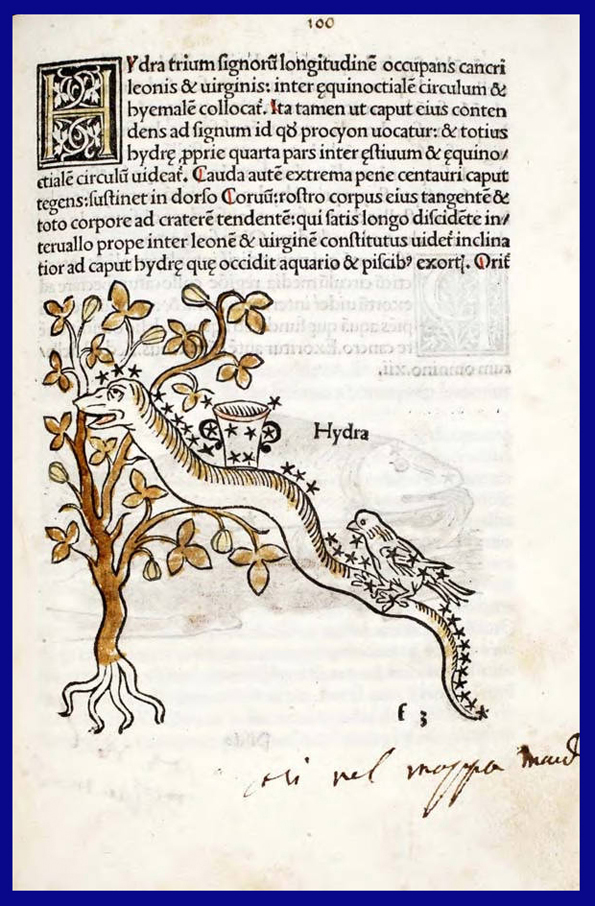 100
HYdra trium signorū longitudinē occupans cancri
leonis & uirginis: inter ęquinoctialē circulum &
byemalē collocat̄. Ita tamen ut caput eius conten
dens ad signum id qđ procyon uocatur: & totius
hydrę ꝓprie quarta pars inter ęstiuum & ęquino/
ctialē circulū uideat̄. Cauda autē extrema pene centauri caput
tegens: sustinet in dorso Coruū: rostro corpus eius tangentē &
toto corpore ad craterē tendentē: qui satis longo discidēte in/
teruallo prope inter leonē & uirginē constitutus uidet̄ inclina
tior ad caput hydrę quę occidit aquario & piscibꝰ exorti. Orit̄
Hydra
f 3
nel mappa